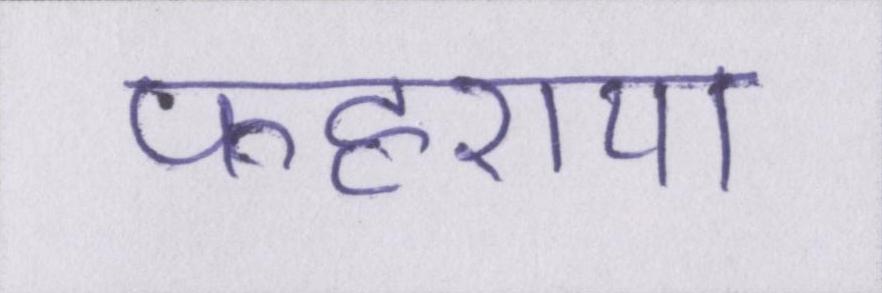 फहराया